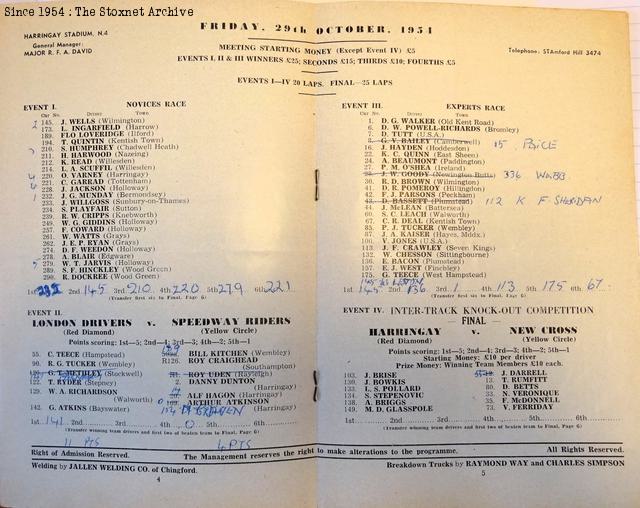 Since 1954 : The Stoxnet Archive
FRIDAY, 29th OCTOBER, 1954
HARRINGAY STADIUM, N.4
General Manager:
MAJOR R. F. A. DAVID
MEETING STARTING MONEY (Except Event IV) £5
EVENTS I, II & III WINNERS £25; SECONDS £15; THIRDS £10; FOURTHS £5
Telephone: STAmford Hill 3474
EVENTS I—IV 20 LAPS. FINAL—25 LAPS
EVENT I. NOVICES RACE
Car No. Driver Town
145. J. WELLS (Wilmington)
173. L. INGARFIELD (Harrow)
189. FLO LOVERIDGE (Ilford)
194. T. QUINTIN (Kentish Town)
210. S. HUMPHREY (Chadwell Heath)
211. H. HARWOOD (Nazeing)
212. K. READ (Willesden)
214. L. A. SCUFFIL (Willesden)
220. O. VARNEY (Harringay)
221. C. GARRAD (Tottenham)
228. J. JACKSON (Holloway)
232. J. G. MUNDAY (Bermondsey)
233. J. WILLGOSS (Sunbury-on-Thames)
234. S. PLAYFAIR (Sutton)
239. R. W. CRIPPS (Knebworth)
249. W. G. GIDDINS (Holloway)
257. F. COWARD (Holloway)
261. W. WATTS (Grays)
262. J. E. P. RYAN (Grays)
274. D. F. WEEDON (Holloway)
278. A. BLAIR (Edgware)
279. W. T. JARVIS (Holloway)
289. S. F. HINCKLEY (Wood Green)
290. R. DOCKREE (Wood Green)
1st 232 2nd 145 3rd 210 4th 220 5th 279 6th 221
(Transfer first six to Final, Page 6)
EVENT II.
LONDON DRIVERS v. SPEEDWAY RIDERS
(Red Diamond) (Yellow Circle)
Points scoring: 1st—5; 2nd—4; 3rd—3; 4th—2; 5th—1
55. C. TEECE (Hampstead) BILL KITCHEN (Wembley)
90. R. G. TUCKER (Wembley) R126. ROY CRAIGHEAD (Southampton)
(Stockwell) ROY UDEN (Rayleigh)
122. T. RYDER (Stepney) 2. DANNY DUNTON (Harringay)
129. W. A. RICHARDSON (Walworth) ALF HAGON (Harringay)
ARTHUR ATKINSON (Harringay)
142. G. ATKINS (Bayswater)
1st 141 2nd 3rd 4th 0 5th 6th
(Transfer winning team drivers and first two of beaten team to Final, Page 6)
11 PTS 4 PTS
EVENT III. EXPERTS RACE
Car No. Driver Town
1. D. G. WALKER (Old Kent Road)
6. D. W. POWELL-RICHARDS (Bromley)
7. D. TUTT (U.S.A.)
G. V. BAILEY (Camberwell) 15 PRICE
16. J. HAYDEN (Hoddesdon)
22. K. C. QUINN (East Sheen)
24. A. BEAUMONT (Paddington)
27. P. M. O'SHEA (Ireland)
J. W. GOODY (Newington Butts) 336 WEBB
30. R. D. BROWN (Wilmington)
41. D. R. POMEROY (Hillington)
42. F. J. PARSONS (Peckham)
D. BASSETT (Plumstead) 112 K F SHERIDAN
44. J. McLEAN (Battersea)
60. S. C. LEACH (Walworth)
67. C. R. DEAL (Kentish Town)
85. P. J. TUCKER (Wembley)
87. J. A. KAISER (Hayes, Mddx.)
100. V. JONES (U.S.A.)
113. J. F. CRAWLEY (Seven Kings)
132. W. CHESSON (Sittingbourne)
136. E. BACON (Plumstead)
157. E. J. WEST (Finchley)
175. G. TEECE (West Hampstead)
1st 2nd 136 3rd 1 4th 113 5th 175 6th 67
(Transfer first six to Final, Page 6)
EVENT IV. INTER-TRACK KNOCK-OUT COMPETITION
— FINAL —
HARRINGAY v. NEW CROSS
(Red Diamond) (Yellow Circle)
Points scoring: 1st—5; 2nd—4; 3rd—3; 4th—2; 5th—1
Starting Money: £10 per driver
Prize Money: Winning Team Members £10 each.
103. J. BRISE J. DARRELL
139. J. BOWKIS 13. T. RUMFITT
133. L. S. POLLARD 80. D. BETTS
134. S. STEPENOVIC 33. N. VERONIQUE
138. A. BRIGGS 35. F. McDONELL
149. M. D. GLASSPOLE 73. V. FERRIDAY
1st 2nd 3rd 4th 5th 6th
(Transfer winning team drivers and first two of beaten team to Final, Page 6)
Right of Admission Reserved. The Management reserves the right to make alterations to the programme. All Rights Reserved.
Welding by JALLEN WELDING CO. of Chingford.
Breakdown Trucks by RAYMOND WAY and CHARLES SIMPSON
4
5